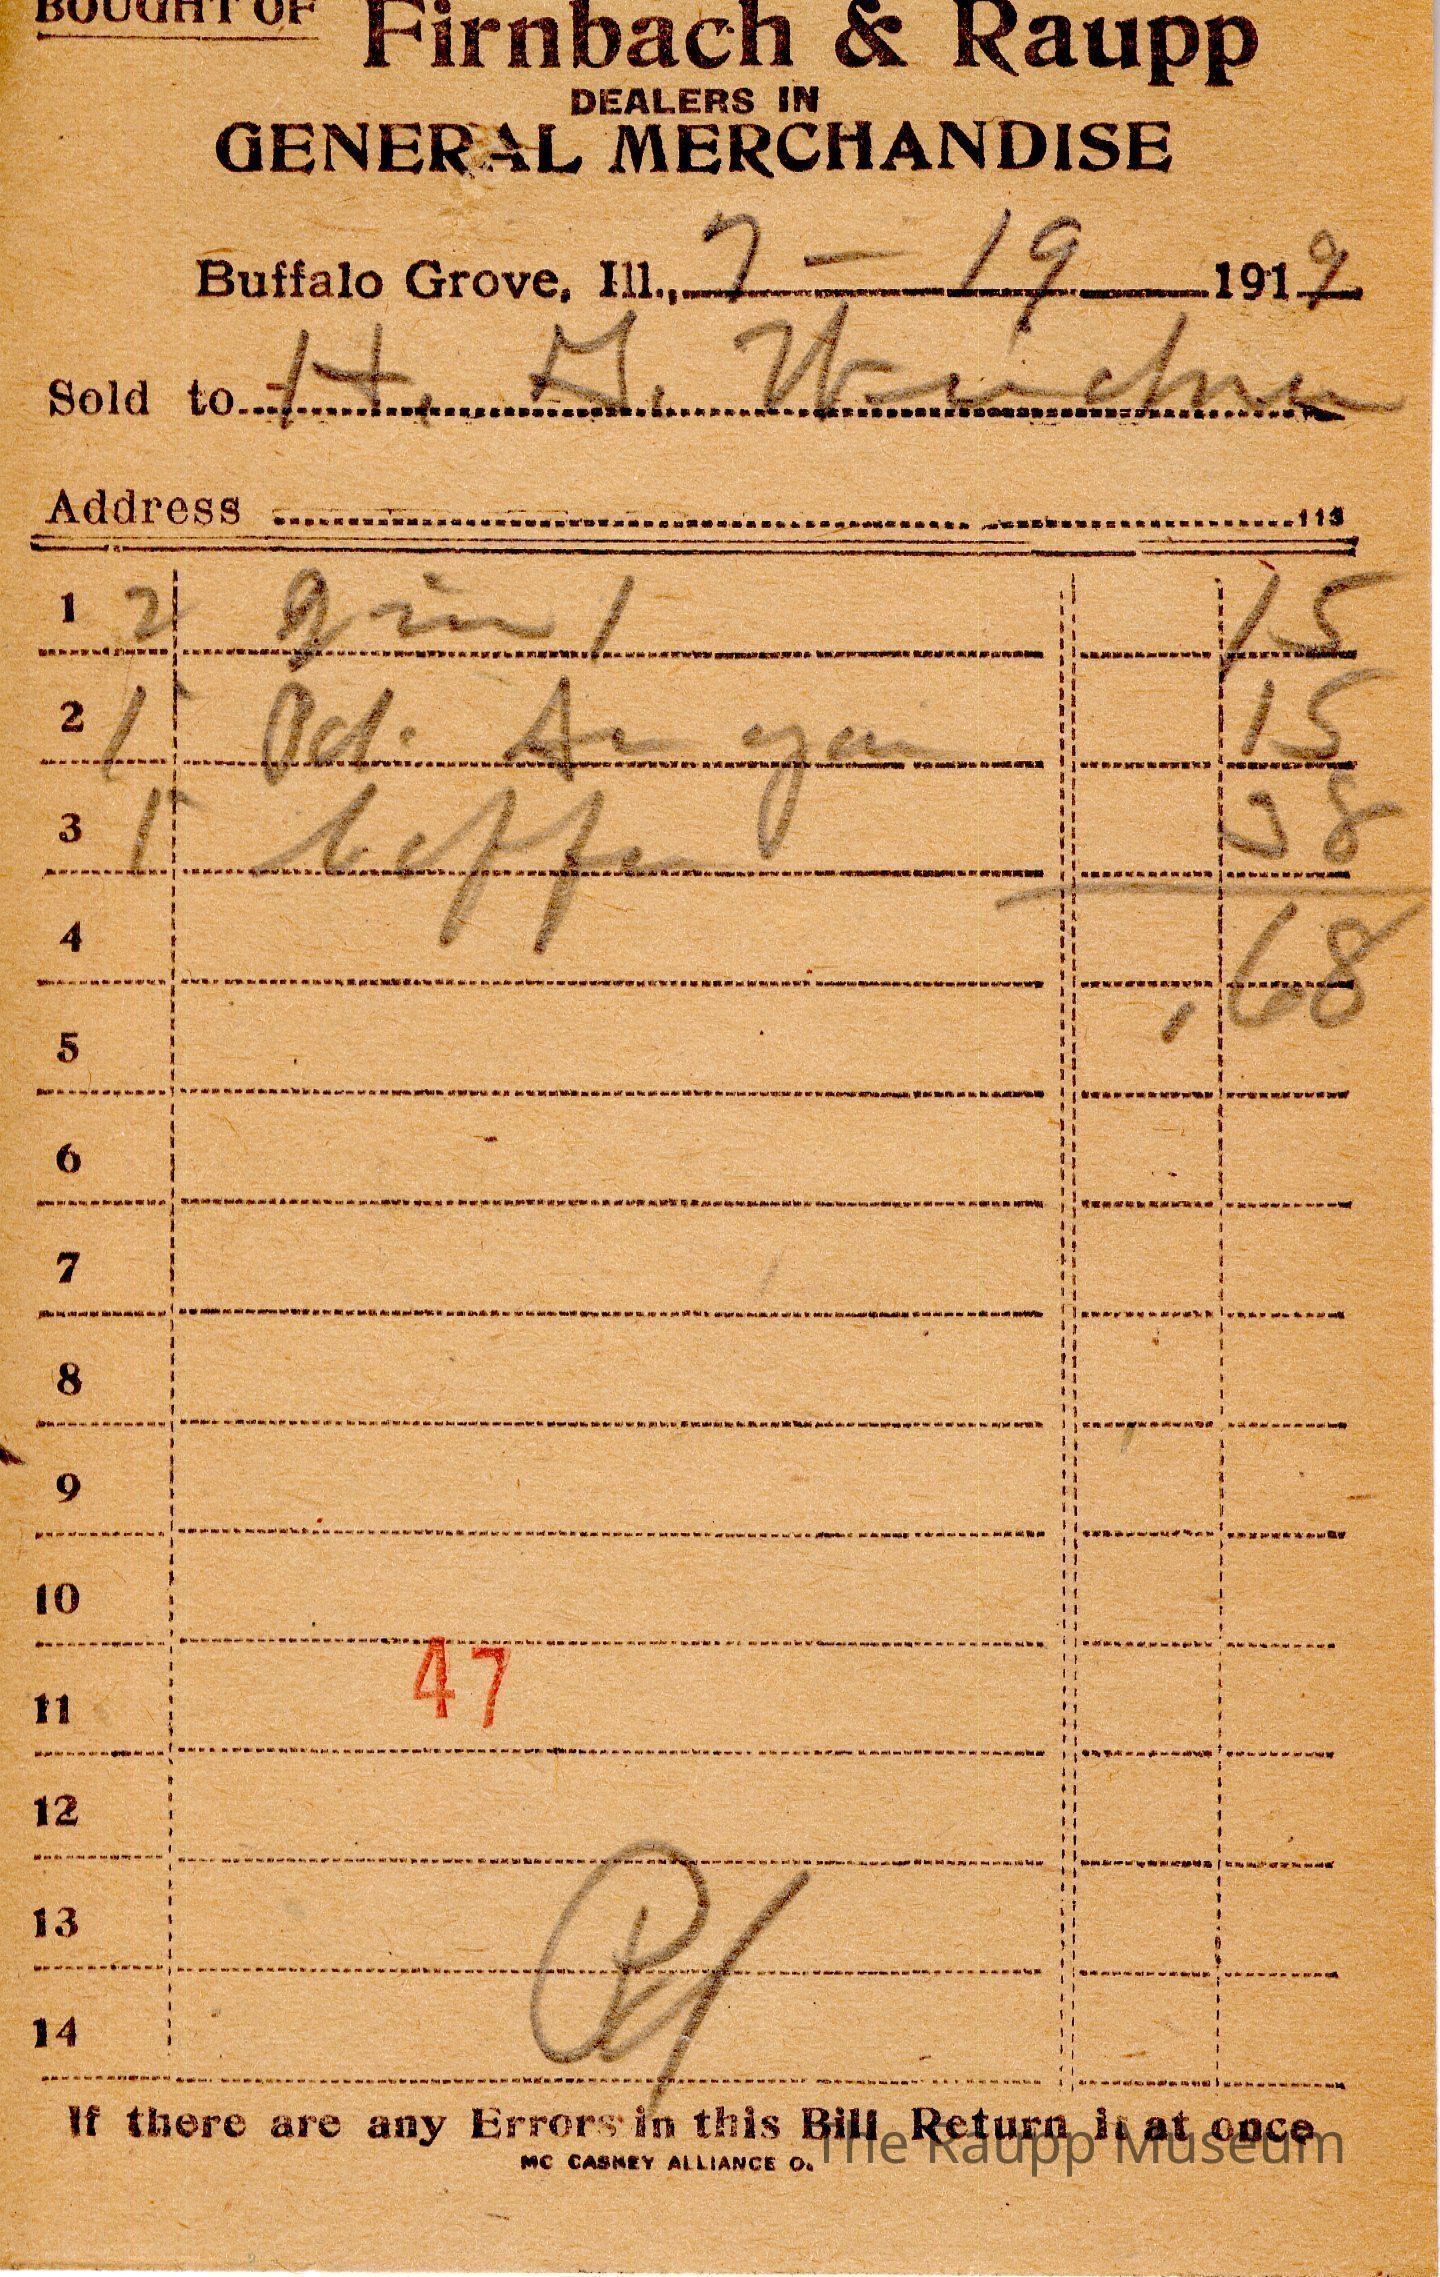 BOUGHT OF
Firnbach & Raupp
DEALERS IN
GENERAL MERCHANDISE
Buffalo Grove, Ill., 7 - 19 1919
Sold to H. G.
Address 113
1 2 15
2 1 15
3 1 Coffee 38
4 .68
5
6
7
8
9
10
47
11
12
13
14
If there are any Errors in this Bill Return it at once
MC CASKEY ALLIANCE O.
The Raupp Museum